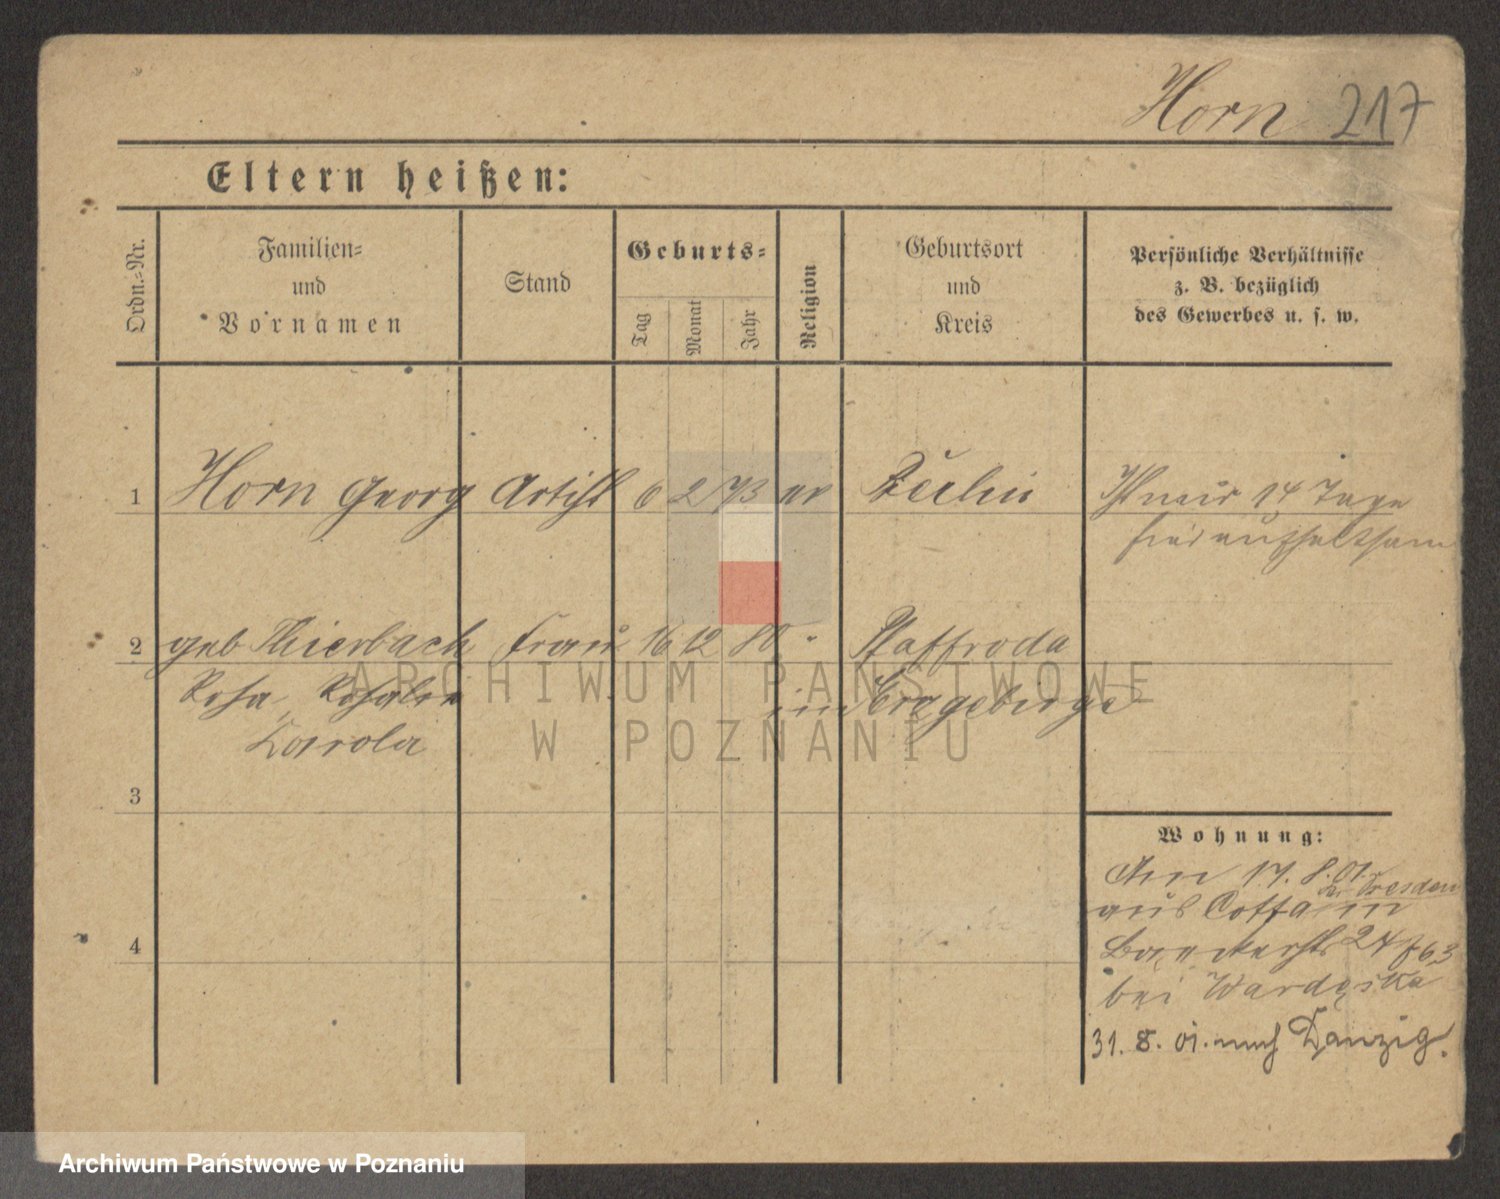 Horn 217
Eltern heißen:
Ordn.-Nr.
Familien-
und
Vornamen
Stand
Geburts-
Tag
Monat
Jahr
Religion
Geburtsort
und
Kreis
Persönliche Verhältnisse
z. B. bezüglich
des Gewerbes u. s. w.
1 Horn Georg Artist 6 2 73 ev
Ist nur 14 Tage
hier aufhaltsam
2 geb Thierbach Frau 16 12 80 " Pfaffroda
Rosa Rosalie im Erzgebirge
Karola
3
4
Wohnung:
Am 17. 8. 01.
bei Dresden
aus Cotta in
24
bei
31. 8. 01. nach Danzig.
ARCHIWUM PAŃSTWOWE
W POZNANIU
Archiwum Państwowe w Poznaniu